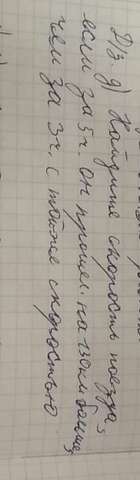 D/з. g) Найдите скорость поезда,
если за 5 ч. он прошел на 130 км больше,
чем за 3 ч. с той же скоростью